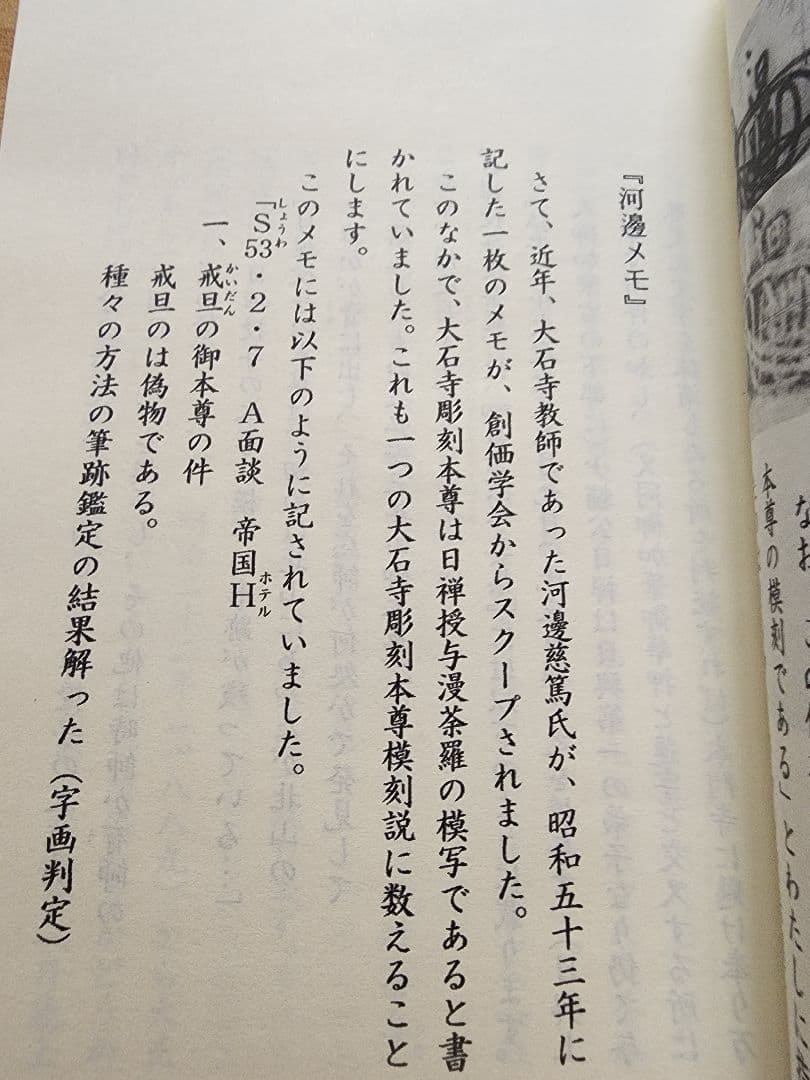 なお、この
本尊の模刻である」とわたしに
『河邊メモ』
さて、近年、大石寺教師であった河邊慈篤氏が、昭和五十三年に
記した一枚のメモが、創価学会からスクープされました。
このなかで、大石寺彫刻本尊は日禅授与漫荼羅の模写であると書
かれていました。これも一つの大石寺彫刻本尊模刻説に数えること
にします。
このメモには以下のように記されていました。
「S53・2・7 A面談 帝国H
しょうわ
ホテル
一、戒旦の御本尊の件
かいだん
戒旦のは偽物である。
種々の方法の筆跡鑑定の結果解った（字画判定）